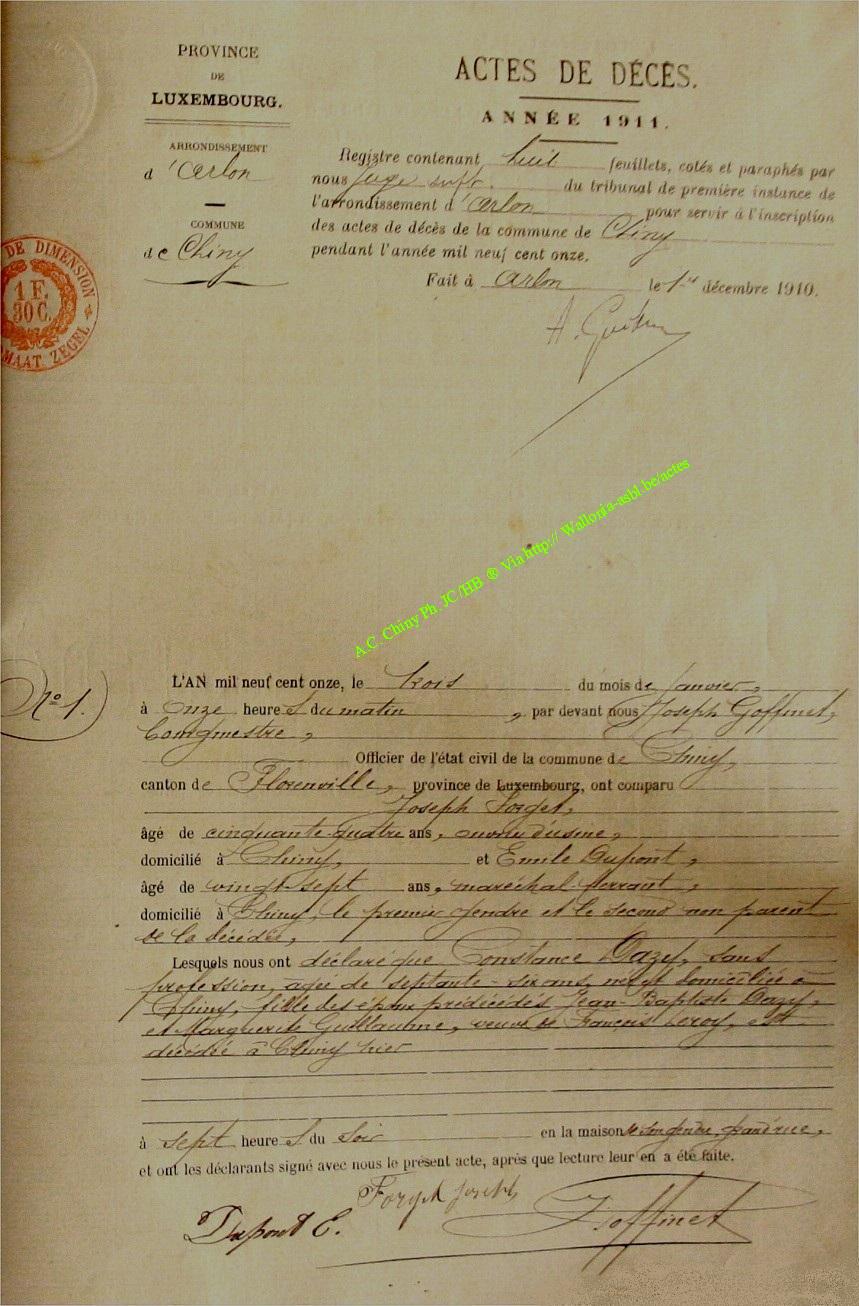 PROVINCE
DE
LUXEMBOURG.
ARRONDISSEMENT
d'Arlon
COMMUNE
de Chiny
ACTES DE DÉCÈS.
ANNÉE 1911.
Registre contenant huit feuillets, cotés et paraphés par
nous juge du tribunal de première instance de
l'arrondissement d'Arlon pour servir à l'inscription
des actes de décès de la commune de Chiny
pendant l'année mil neuf cent onze.
Fait à Arlon le 1er décembre 1910.
DE DIMENSION
1 F.
30 C.
MAAT ZEGEL
A.C. Chiny Ph. JC/HB ® Via http:// Wallonia-asbl.be/actes
No 1.
L'AN mil neuf cent onze, le trois du mois de janvier,
à onze heures du matin, par devant nous Joseph Goffinet,
bourgmestre,
Officier de l'état civil de la commune de Chiny,
canton de Florenville, province de Luxembourg, ont comparu
Joseph Forget,
âgé de cinquante-quatre ans, ouvrier d'usine,
domicilié à Chiny, et Emile Dupont,
âgé de vingt-sept ans, maréchal-ferrant,
domicilié à Chiny, le premier gendre et le second non parent
de la décédée,
Lesquels nous ont déclaré que Constance Dazy, sans
profession, agée de septante-six ans, née et domiciliée à
Chiny, fille des époux prédécédés Jean-Baptiste Dazy,
et Marguerite Guillaume, veuve de François Leroy, est
décédée à Chiny hier
à sept heures du soir en la maison de son gendre, grand'rue,
et ont les déclarants signé avec nous le présent acte, après que lecture leur en a été faite.
Forget Joseph
Dupont E. J. Goffinet